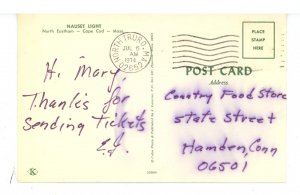 NAUSET LIGHT
North Eastham - Cape Cod - Mass
NORTH TRURO, MA.
JUL 6
AM
1974
02652
PLACE
STAMP
HERE
POST CARD
Hi Mary,
Thanks for
Sending Tickets
Country Food Store
State Street
Hamden, Conn
06501
K